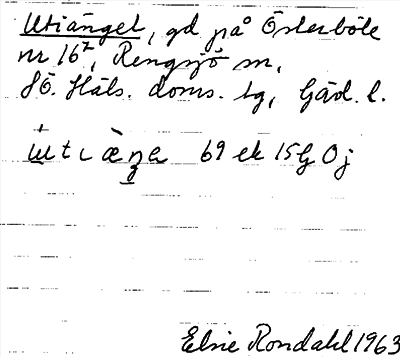 Utiänget, gd på Österböle
nr 16², Rengsjö sn,
SÖ. Häls. doms. tg, Gävl. l.
ùtiæ̀ŋa 69 ek 15G Öj
Elsie Rondahl 1963